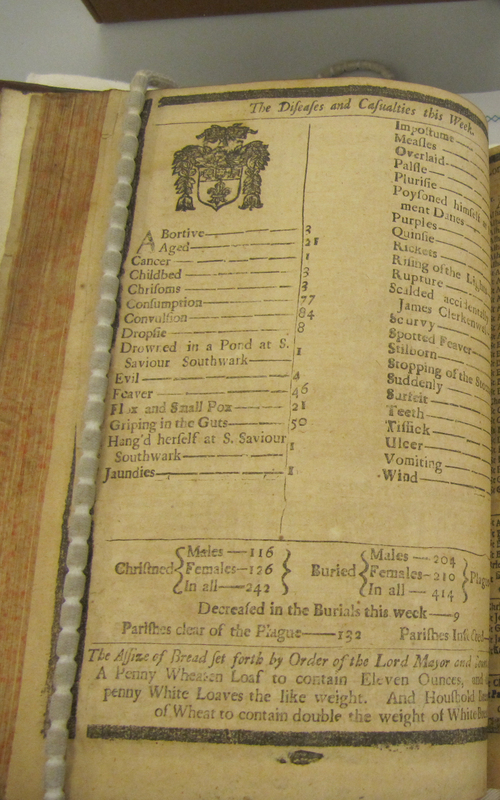 The Diseases and Casualties this Week.
ABortive 3
Aged 28
Cancer 1
Childbed 3
Chrisoms 3
Consumption 77
Convulsion 84
Dropsie 8
Drowned in a Pond at S.
Saviour Southwark 1
Evil 4
Feaver 46
Flox and Small Pox 21
Griping in the Guts 50
Hang'd herself at S. Saviour
Southwark 1
Jaundies 1
Impostume
Measles
Overlaid
Palsie
Plurisie
Poysoned himself
ment Danes
Purples
Quinsie
Rickets
Rising of the Lights
Rupture
Scalded accidentally
James Clerkenwell
Scurvy
Spotted Feaver
Stilborn
Stopping of the
Suddenly
Surfeit
Teeth
Tissick
Ulcer
Vomiting
Wind
Christned { Males — 116 } Buried { Males — 204 }
Females — 126 Females — 210 Plague
In all — 242 In all — 414
Decreased in the Burials this week — 9
Parishes clear of the Plague — 132 Parishes
The Assize of Bread set forth by Order of the Lord Major and
A Penny Wheaten Loaf to contain Eleven Ounces, and
penny White Loaves the like weight. And Houshold
of Wheat to contain double the weight of White